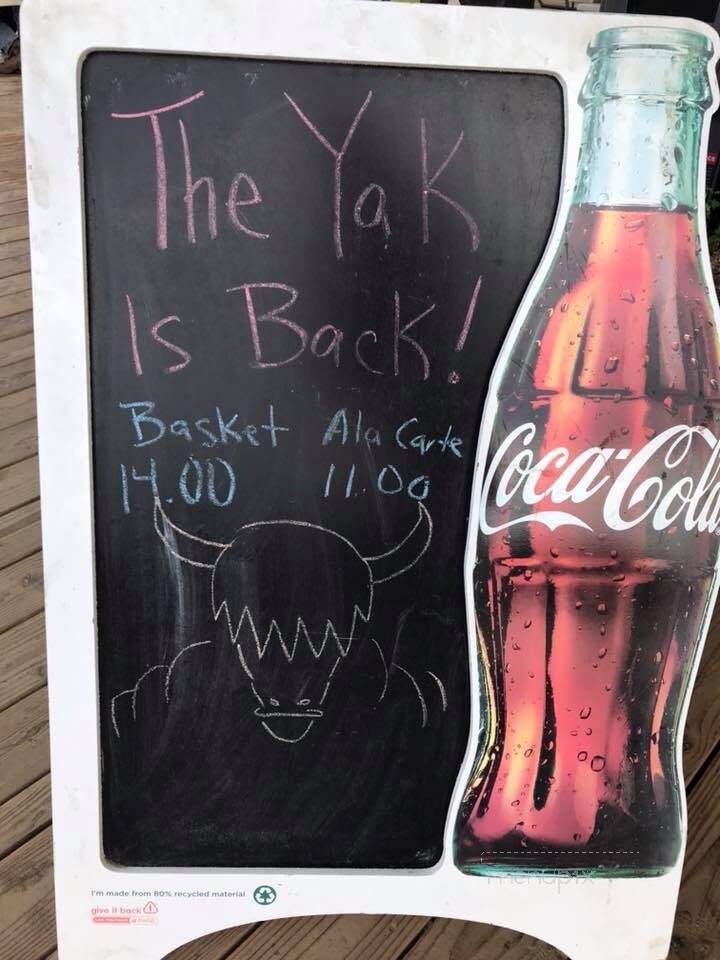 The Yak
Is Back!
Basket Ala Carte
14.00 11.00
Coca-Cola
I'm made from 80% recycled material
give it back
menupix